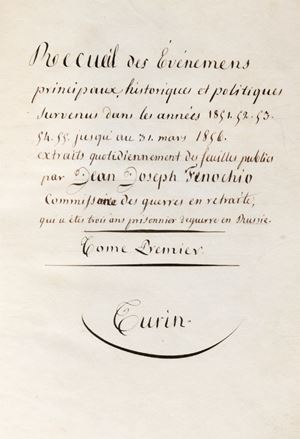 Recueil des Événemens
principaux, historiques et politiques
survenus dans les années 1851. 52. 53.
54. 55. jusqu'au 31. mars 1856.
extraits quotidiennement des feuilles publics
par Jean Joseph Finochio
Commissaire des guerres en retraite,
qui a étés trois ans prisonnier de guerre en Russie.
Tome Premier.
Turin.